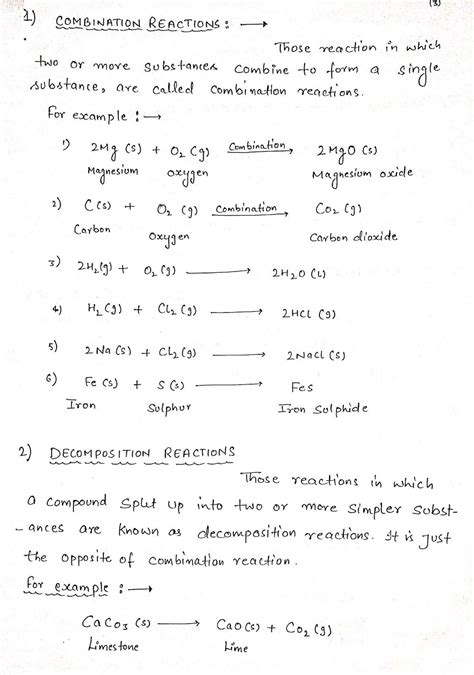 (3)
1) COMBINATION REACTIONS : →
Those reaction in which
two or more substances combine to form a single
substance, are called Combination reactions.
For example : →
1) 2Mg (s) + O2 (g) Combination → 2 MgO (s)
Magnesium oxygen Magnesium oxide
2) C (s) + O2 (g) Combination → CO2 (g)
Carbon Oxygen Carbon dioxide
3) 2H2(g) + O2 (g) → 2H2O (l)
4) H2 (g) + Cl2 (g) → 2HCl (g)
5) 2 Na (s) + Cl2 (g) → 2NaCl (s)
6) Fe (s) + S (s) → FeS
Iron Sulphur Iron Sulphide
2) DECOMPOSITION REACTIONS
Those reactions in which
a compound split up into two or more simpler subst-
- ances are known as decomposition reactions. It is just
the opposite of combination reaction.
For example : →
CaCO3 (s) → CaO(s) + CO2 (g)
Limestone Lime